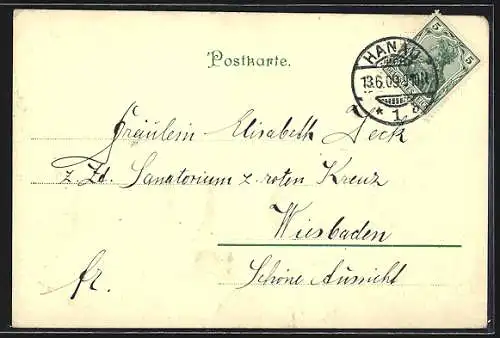 Postkarte.
5 5
HANAU
13.6.09.
* 1
Fräulein Elisabeth Jeck
z. Zd. Sanatorium z. roten Kreuz
Wiesbaden
fr. Schöne Aussicht